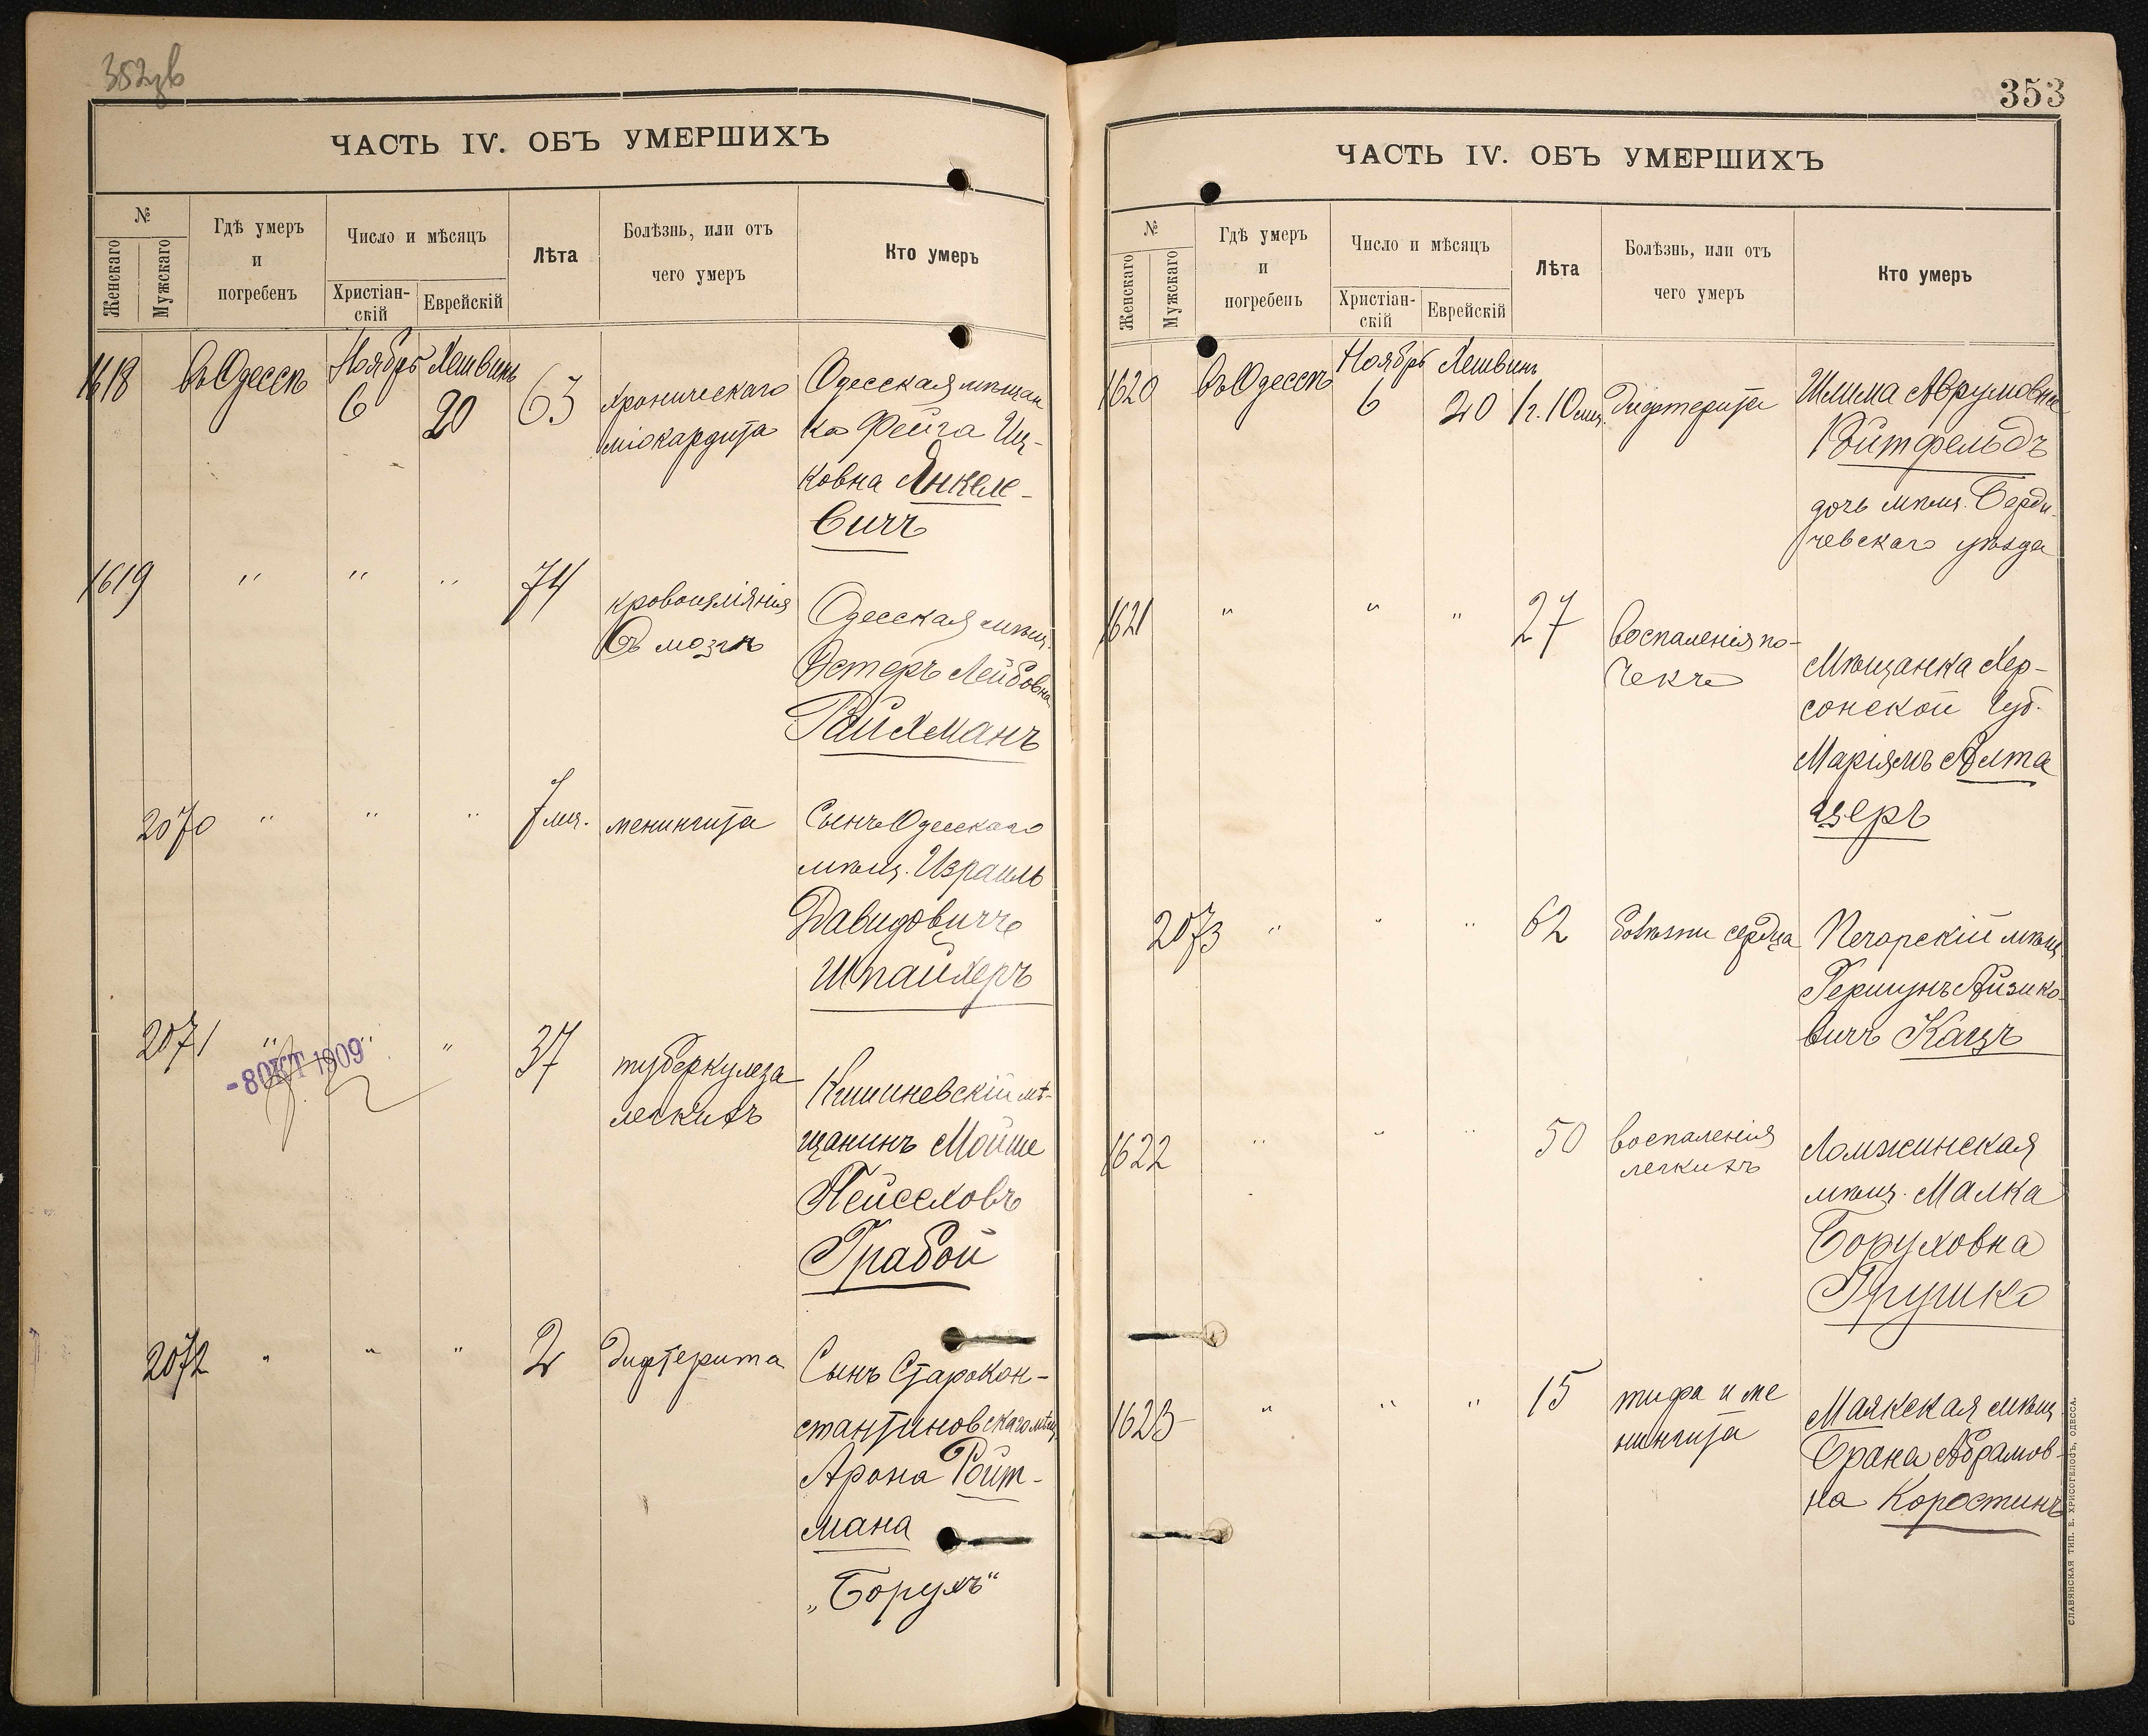 352 зв
ЧАСТЬ IV. ОБЪ УМЕРШИХЪ
№
Женскаго
Мужскаго
Гдѣ умеръ
и
погребенъ
Число и мѣсяцъ
Христіан-
скій
Еврейскій
Лѣта
Болѣзнь, или отъ
чего умеръ
Кто умеръ
1618 въ Одессѣ Ноябрь 6 Хешвинъ 20 63
хроническаго
міокардита
Одесская мѣщан
ка Фейга Иц-
ковна Янкеле-
вичъ
1619 " " " 74
кровоизліянія
въ мозгъ
Одесская мѣщ.
Эстеръ Лейбовна
Райхманъ
2070 " " " 7 мѣс. менингита
Сынъ Одесскаго
мѣщ. Израиль
Давидовичъ
Шпайхеръ
2071 " " " 37
-8 ОКТ 1909
туберкулеза
легкихъ
Кишиневскій мѣ-
щанинъ Мойше
Пейсеховъ
Грабой
2072 " " " 2 дифтерита
Сынъ Старокон-
стантиновскаго мѣщ.
Арона Ройт-
мана
„Борухъ“
353
ЧАСТЬ IV. ОБЪ УМЕРШИХЪ
№
Женскаго
Мужскаго
Гдѣ умеръ
и
погребенъ
Число и мѣсяцъ
Христіан-
скій
Еврейскій
Лѣта
Болѣзнь, или отъ
чего умеръ
Кто умеръ
1620 въ Одессѣ Ноябрь 6 Хешвинъ 20 1 г. 10 мѣс. дифтерита
Шлима Аврумовна
Ройтфельдъ
дочь мѣщ. Берди-
чевскаго уѣзда
1621 " " " 27
воспаленія по-
чекъ
Мѣщанка Хер-
сонской Губ.
Маріямъ Алта
церъ
2073 " " " 62 болѣзни сердца
Печарскій мѣщ.
Гершунъ Айзико-
вичъ Кацъ
1622 " " " 50
воспаленія
легкихъ
Ломжинская
мѣщ. Малка
Боруховна
Грушко
1623 " " " 15
тифа и ме
нингита
Маякская мѣщ.
Брана Абрамов-
на Коростинъ
СЛАВЯНСКАЯ ТИП. Е. ХРИСОГЕЛОСЪ, ОДЕССА.